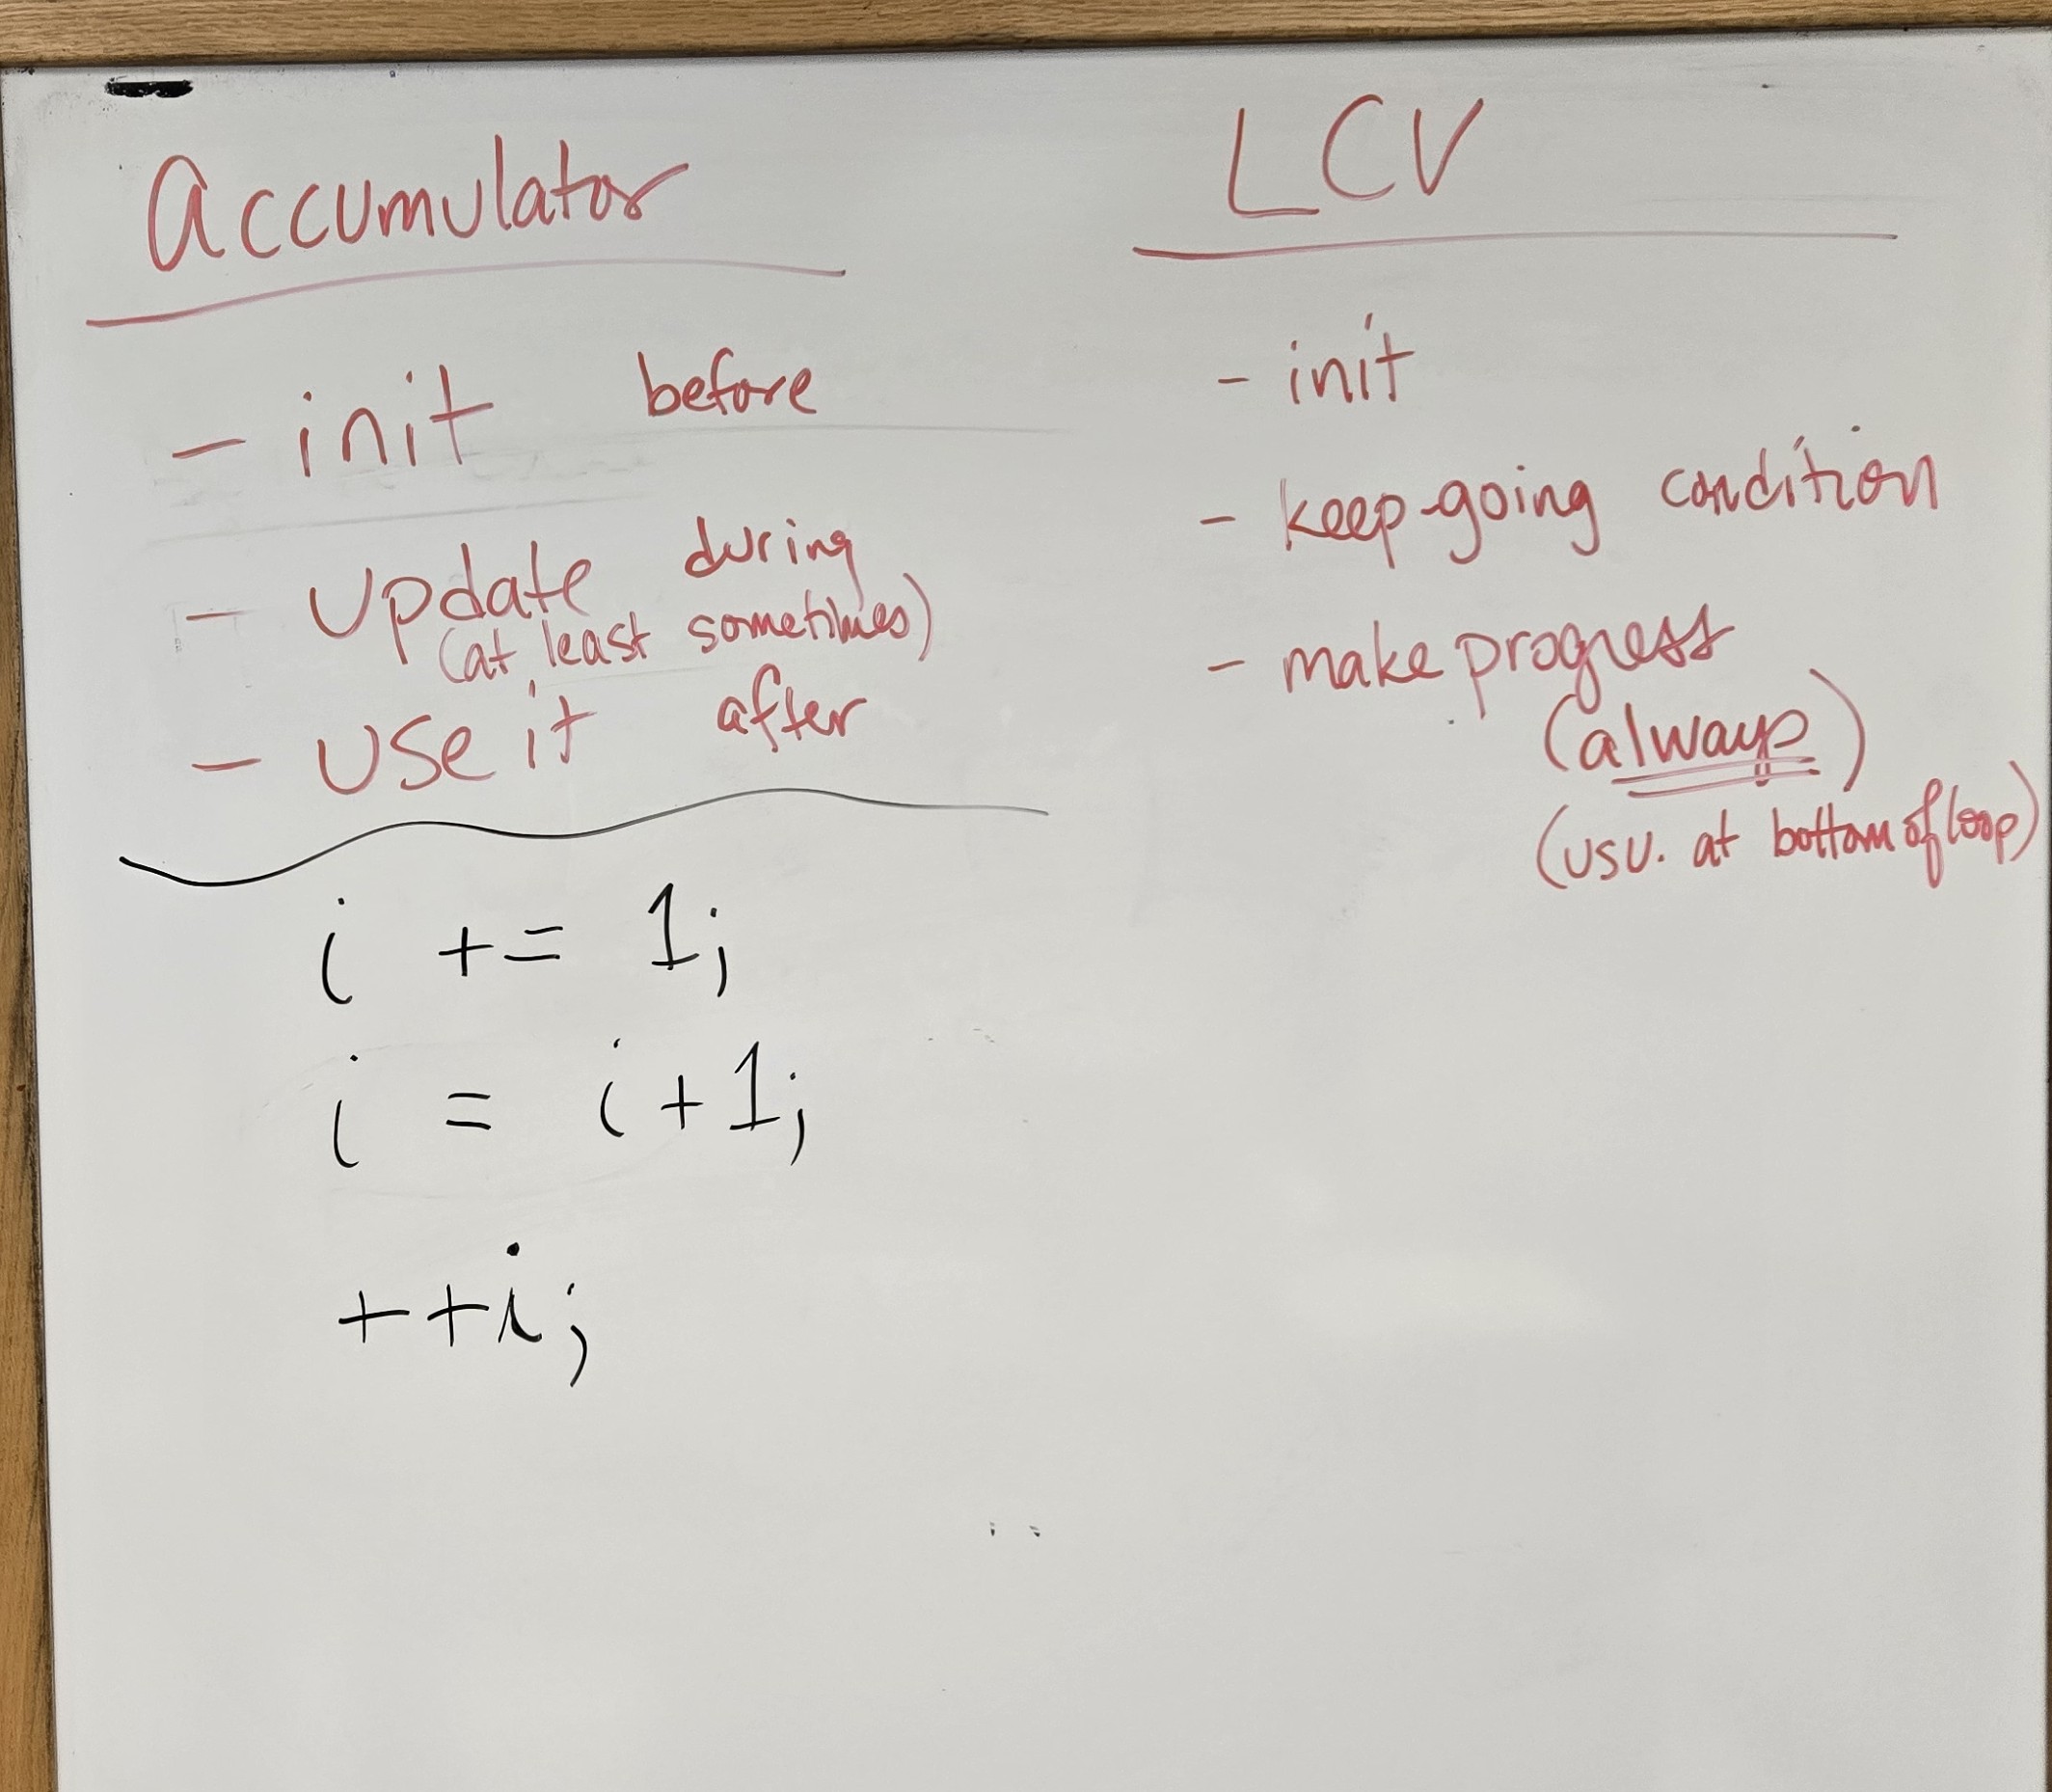 Accumulator
- init before
- Update during
(at least sometimes)
- Use it after
i += 1;
i = i + 1;
++i;
LCV
- init
- keep-going condition
- make progress
(always)
(usu. at bottom of loop)